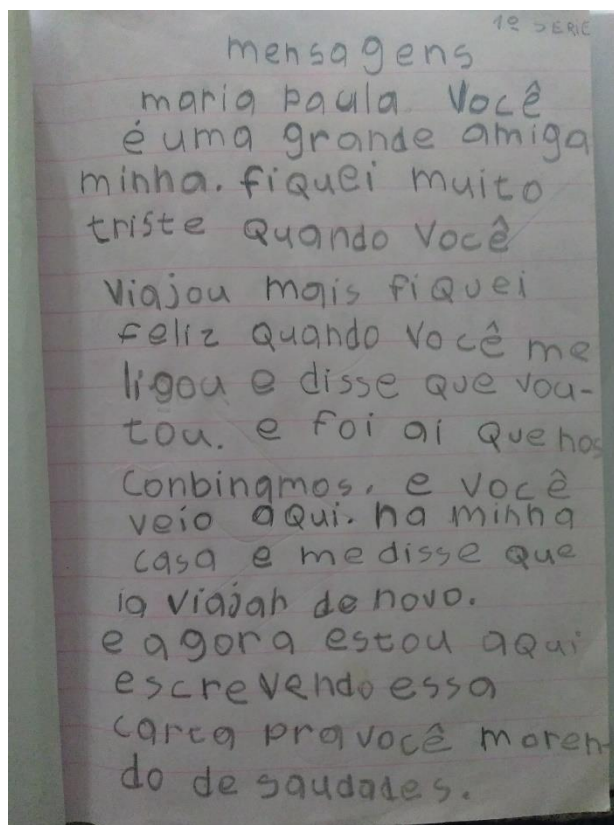 1º SERIE
mensagens
maria paula você
é uma grande amiga
minha. fiquei muito
triste Quando Você
viajou mais fiquei
feliz quando você me
ligou e disse que vou-
tou. e foi ai que nos
conbinamos. e você
veio aqui. na minha
casa e me disse que
ia viajah de novo.
e agora estou aqui
escrevendo essa
carta pra você moren-
do de saudades.